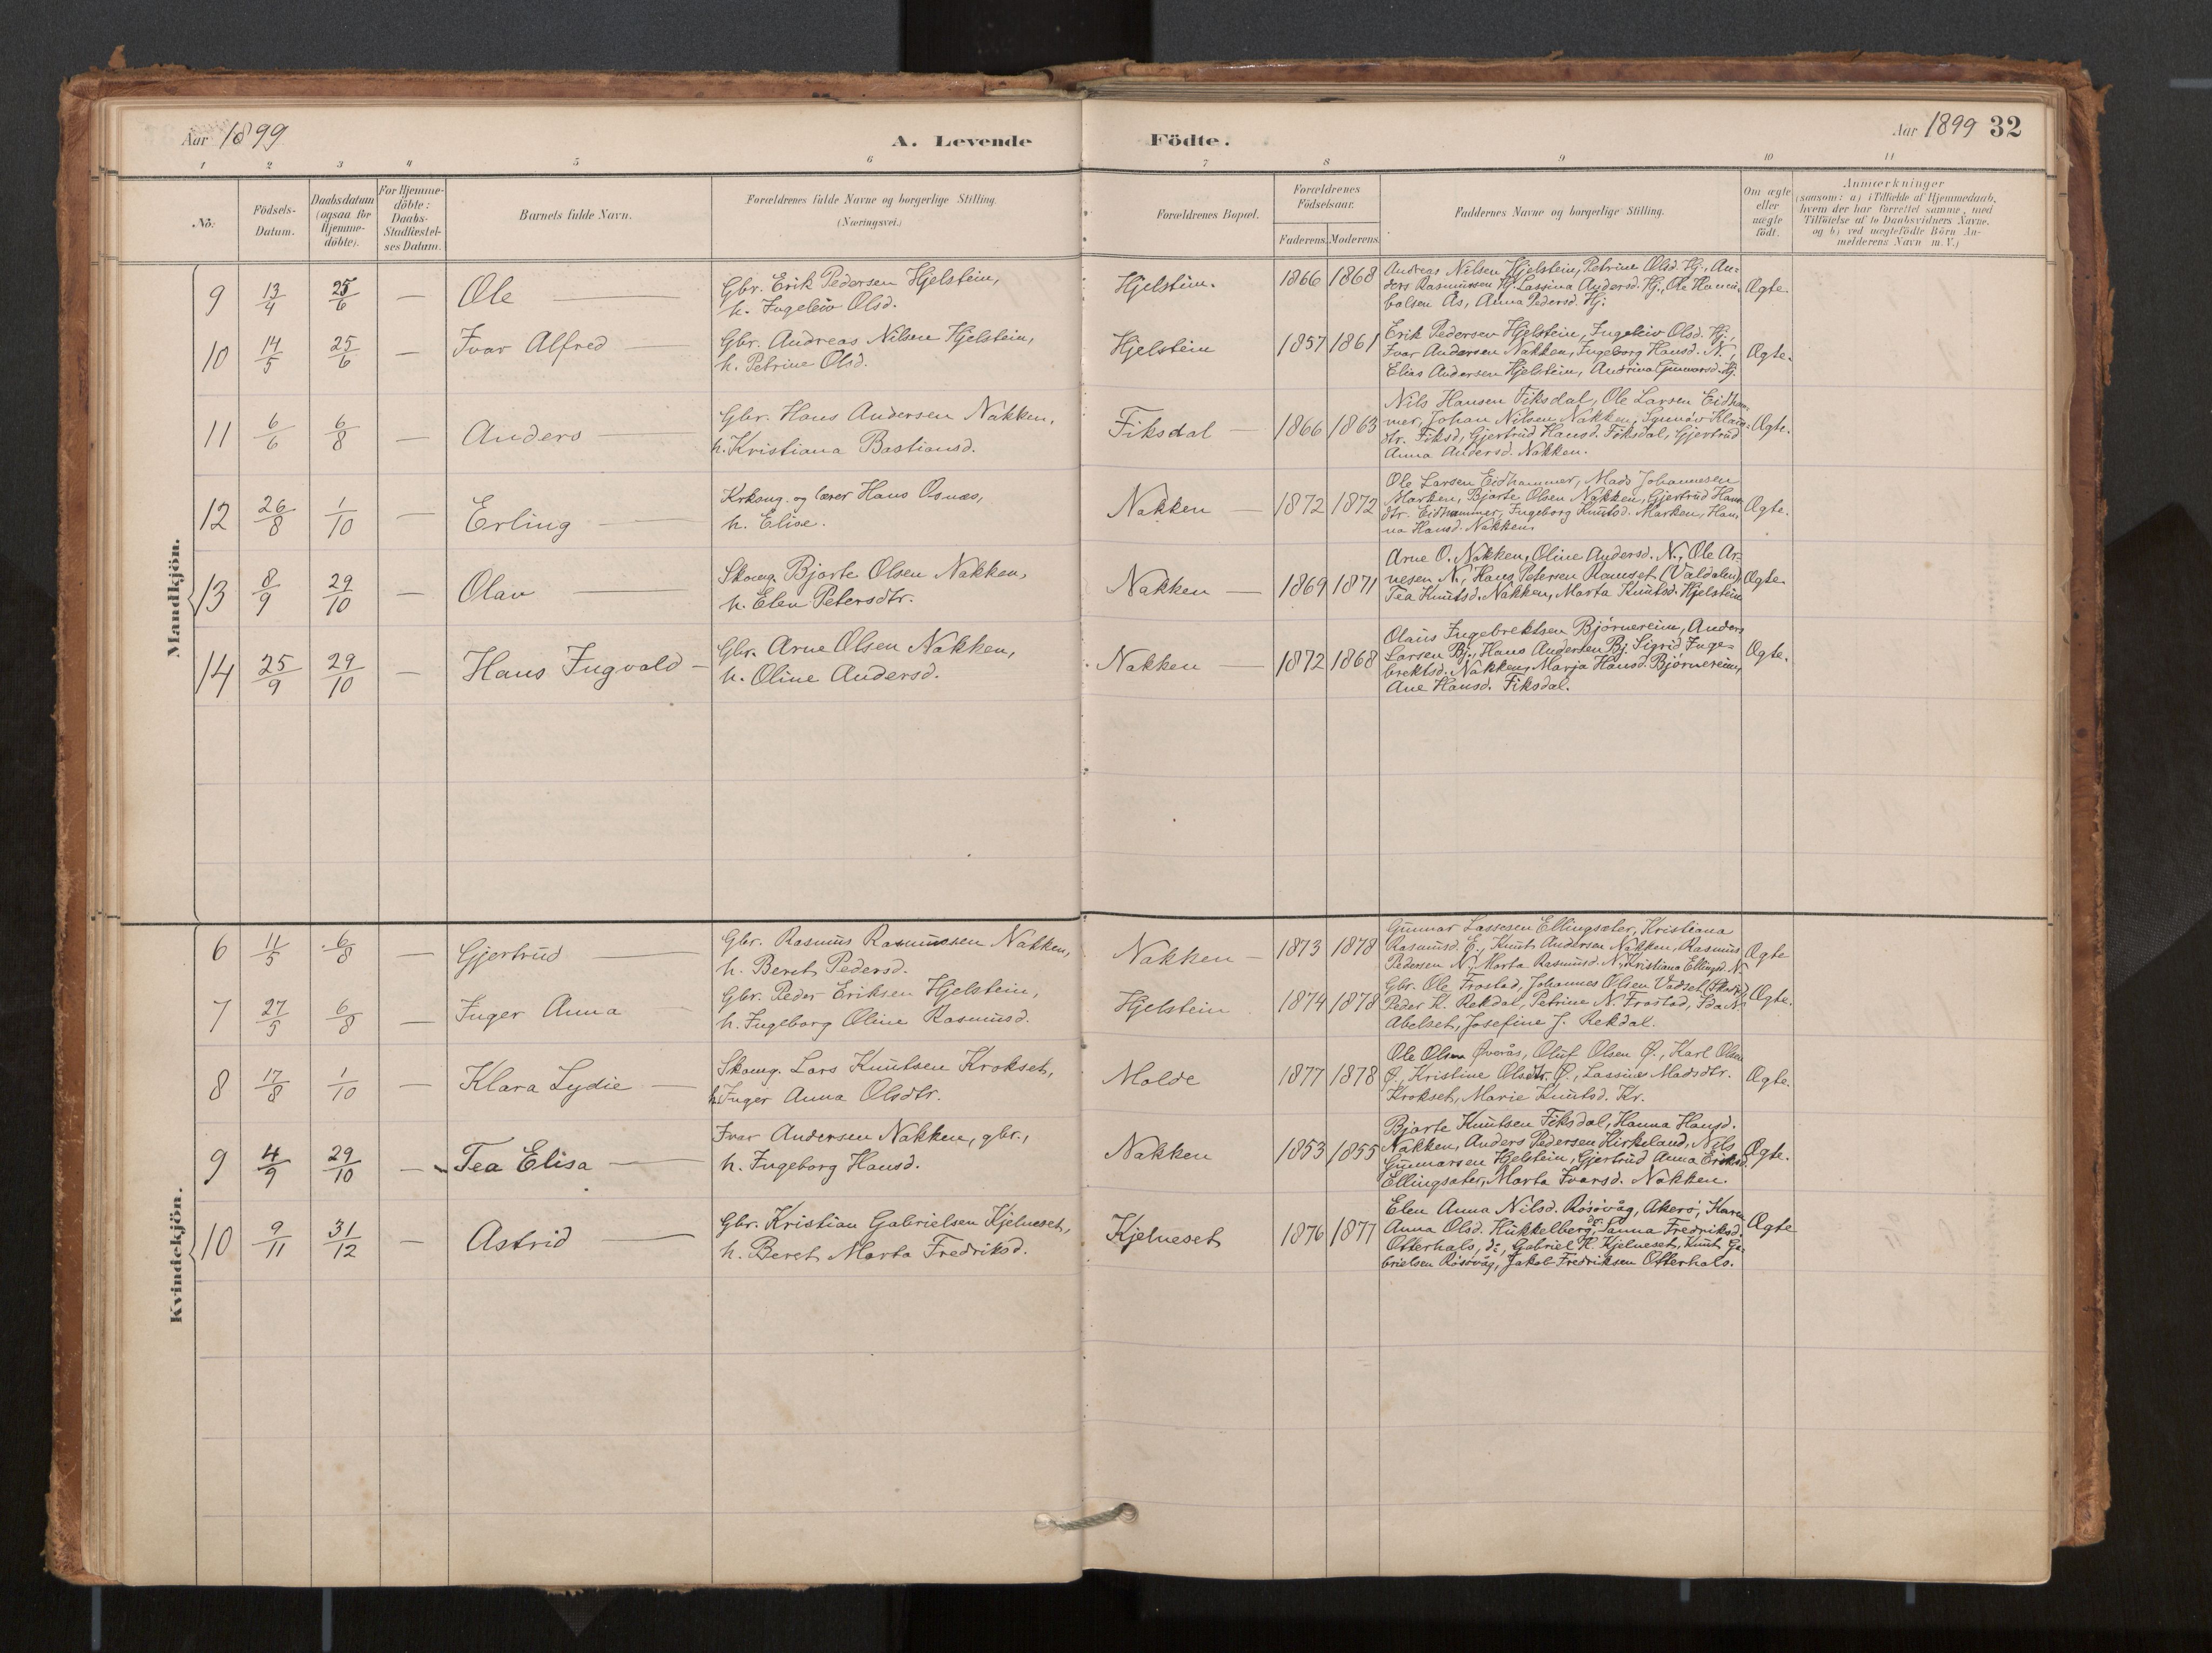 Aar 1899
A. Levende
Födte.
Aar 1899 32
1 2 3 4 5 6 7 8 9 10 11
No:
Födsels-
Datum.
Daabsdatum
(ogsaa for
Hjemme-
döbte).
For Hjemme-
döbte:
Daabs-
Stadfæstel-
ses Datum.
Barnets fulde Navn.
Forældrenes fulde Navne og borgerlige Stilling.
(Næringsvei.)
Forældrenes Bopæl.
Forældrenes
Födselsaar.
Faderens. Moderens.
Faddernes Navne og borgerlige Stilling.
Om ægte
eller
uægte
födt.
Anmærkninger
(saasom: a) i Tilfælde af Hjemmedaab,
hvem der har forrettet samme, med
Tilföielse af to Daabsvidners Navne,
og b) ved uægtefödte Börn An-
melderens Navn m. V.)
Mandkjön.
9 13/4 25/6 — Ole —
Gbr. Erik Pedersen Hjelstein,
h. Ingeleiv Olsd.
Hjelstein. 1866 1868
Andreas Nilsen Hjelstein, Petrine Olsd. Hj., An-
ders Rasmussen Hj. Lassina Andersd. Hj., Ole Hanni-
balsen Ås, Anna Pedersd. Hj.
Ægte.
10 14/5 25/6 — Ivar Alfred —
Gbr. Andreas Nilsen Hjelstein,
h. Petrine Olsd.
Hjelstein 1857 1861
Erik Pedersen Hjelstein, Ingeleiv Olsd. Hj.,
Ivar Andersen Nakken, Ingeborg Hansd. N.,
Elias Andersen Hjelstein, Andrina Gunnarsd. Hj.
Ægte.
11 6/6 6/8 — Anders —
Gbr. Hans Andersen Nakken,
h. Kristiana Bastiansd.
Fiksdal — 1866 1863
Nils Hansen Fiksdal, Ole Larsen Eidham-
mer, Johan Nilsen Nakken, Synnöv
dtr. Fiksd, Gjertrud Hansd. Fiksdal, Gjertrud
Anna Andersd. Nakken.
Ægte.
12 26/8 1/10 — Erling —
Krksng. og lærer Hans Osnæs,
h. Elise.
Nakken — 1872 1872
Ole Larsen Eidhammer, Mads Johannesen
Marken, Bjarte Olsen Nakken, Gjertrud Hans-
dtr. Eidhammer, Ingeborg Knutsd. Marken, Han-
na Hansd. Nakken.
Ægte.
13 8/9 29/10 — Olav —
Skomg. Bjarte Olsen Nakken,
h. Elen Petersdtr.
Nakken — 1869 1871
Arne O. Nakken, Oline Andersd. N., Ole Ar-
nesen N., Hans Petersen (Valdalen)
Tea Knutsd. Nakken, Marta Knutsd. Hjelstein
Ægte.
14 25/9 29/10 — Hans Ingvald —
Gbr. Arne Olsen Nakken,
h. Oline Andersd.
Nakken — 1872 1868
Olaus Ingebrektsen Bjørnereim, Anders
Larsen Bj., Hans Andersen Bj. Sigrid Inge-
brektsd. Nakken, Marja Hansd. Bjørnereim,
Ane Hansd. Fiksdal.
Ægte.
Kvindekjön.
6 11/5 6/8 — Gjertrud —
Gbr. Rasmus Rasmussen Nakken,
h. Beret Pedersd.
Nakken — 1873 1878
Gunnar Lassesen Ellingsæter, Kristiana
Rasmusd. E., Knut Andersen Nakken, Rasmus
Pedersen N., Marta Rasmusd. N., Kristiana Ellingsd. N.
Ægte
7 27/5 6/8 — Inger Anna —
Gbr. Peder Eriksen Hjelstein,
h. Ingeborg Oline Rasmusd.
Hjelstein 1874 1878
Gbr. Ole Frostad, Johannes Olsen Vadset
Peder K. Rekdal, Petrine N. Frostad, Ida N.
Abelset, Josefine J. Rekdal.
Ægte.
8 17/8 1/10 — Klara Lydie —
Skomg. Lars Knutsen Krokset,
h. Inger Anna Olsdtr.
Molde 1877 1878
Ole Olsen Øverås, Oluf Olsen Ø., Karl Olsen
Ø., Kristine Olsdtr. Ø., Lassine Madsdtr.
Krokset, Marie Knutsd. Kr.
Ægte.
9 4/9 29/10 — Tea Elisa —
Ivar Andersen Nakken, gbr.,
h. Ingeborg Hansd.
Nakken 1853 1855
Bjarte Knutsen Fiksdal, Hanna Hansd.
Nakken, Anders Pedersen Kirkeland, Nils
Gunnarsen Hjelstein, Gjertrud Anna Eriksd.
Ellingsæter, Marta Ivarsd. Nakken.
Ægte.
10 9/11 31/12 — Astrid —
Gbr. Kristian Gabrielsen Kjelneset,
h. Beret Marta Fredriksd.
Kjelneset 1876 1877
Elen Anna Nilsd. Røsövåg, Akerö, Karen
Anna Olsd. Hukkelberg, do. Fredriksd.
Otterhals, do, Gabriel K. Kjelneset, Knut Ga-
brielsen Rösövåg, Jakob Fredriksen Otterhals.
Ægte